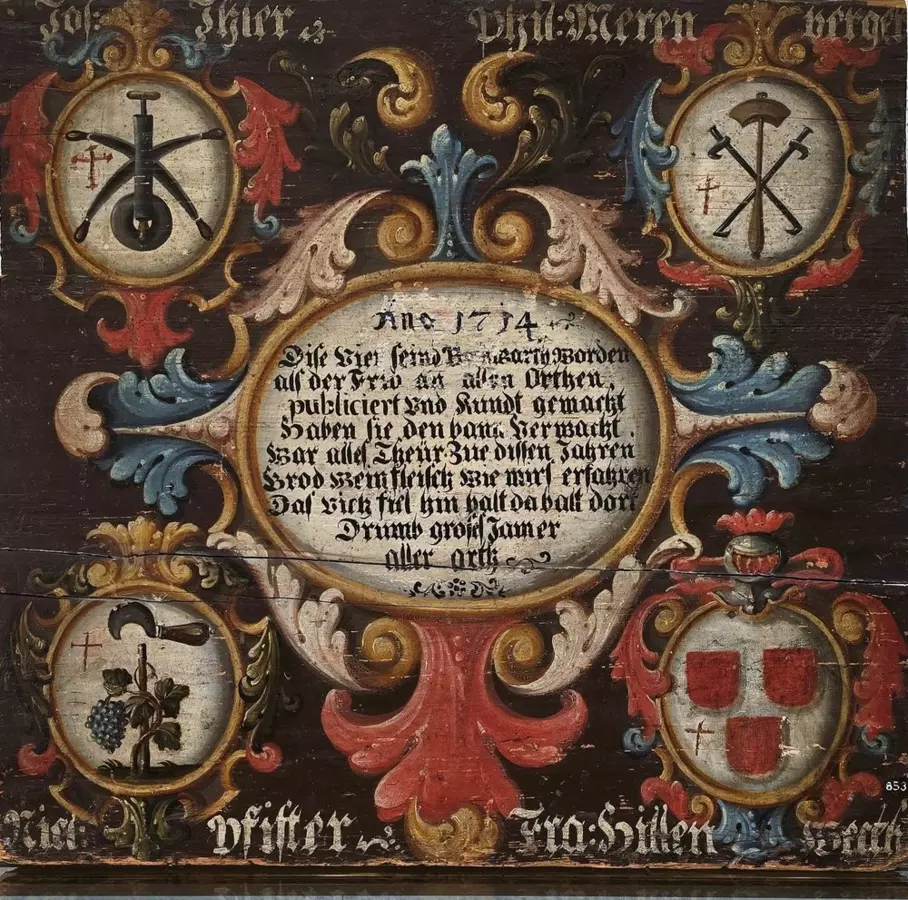 Jos: Ihler
Phil: Merenberger
Ano 1714
Dise Vier seind Worden
alß der Frid an allen Orthen,
publiciert Vnd Kundt gemacht
Haben sie den bann Verwacht.
War alles Theür Zue dissen Jahren
Brod Wein fleisch Wie wirs erfahren
Das Vich fiel hin balt da balt dort
Drumb großes Jamer
aller arth
Nicl: Pfister
Fra: Hillen
853